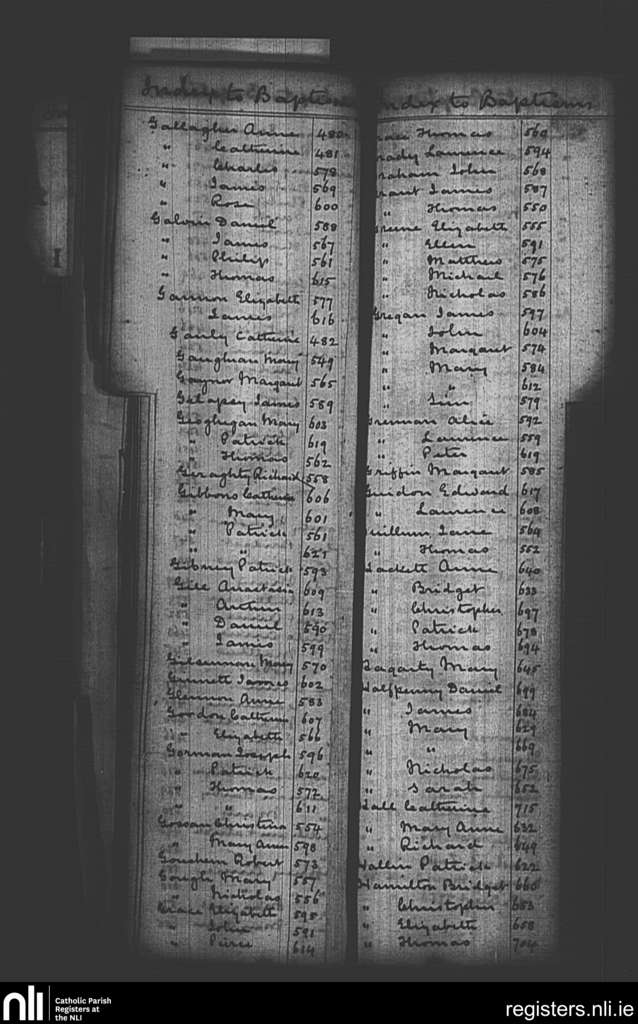 Index to Baptism
Gallagher Anne 480
" Catherine 481
" Charles 578
" James 569
" Rose 600
Galvin Daniel 588
" James 567
" Philip 561
" Thomas 615
Gannon Elizabeth 577
" James 616
Ganly Catherine 482
Gaughan Mary 549
Gaynor Margaret 565
Gelapsy James 589
Geoghegan Mary 603
" Patrick 619
" Thomas 562
Geraghty Richard 558
Gibbons Catherine 606
" Mary 601
" Patrick 561
" " 621
Gibney Patrick 593
Gill Anastasia 609
" Arthur 613
" Daniel 590
" James 599
Gilsennan Mary 570
Ginnett James 602
Glennon Anne 583
Gordon Catherine 607
" Elizabeth 566
Gorman Joseph 596
" Patrick 620
" Thomas 572
" " 611
Gossan Christina 554
" Mary Anne 598
Goushern Robert 573
Gough Mary 557
" Nicholas 556
Grace Elizabeth 595
" John 591
" Pierce 614
Index to Baptisms
Thomas 560
rady Laurence 594
raham John 568
rant James 587
" Thomas 550
reene Elizabeth 555
" Ellen 591
" Matthew 575
" Michael 576
" Nicholas 586
Gregan James 597
" John 604
" Margaret 574
" Mary 584
" " 612
" 579
Grennan Alice 592
" Laurence 559
" Peter 619
Griffin Margaret 585
Guidon Edward 617
" Laurence 608
uillum Jane 564
" Thomas 552
Hackett Anne 640
" Bridget 633
" Christopher 697
" Patrick 678
" Thomas 694
Hagarty Mary 645
Halfpenny Daniel 699
" James 684
" Mary 629
" " 669
" Nicholas 675
" Sarah 652
Hall Catherine 715
" Mary Anne 632
" Richard 649
Hallin Patrick 622
Hamilton Bridget 660
" Christopher 653
" Elizabeth 658
" Thomas 704
nli Catholic Parish
Registers at
the NLI
registers.nli.ie